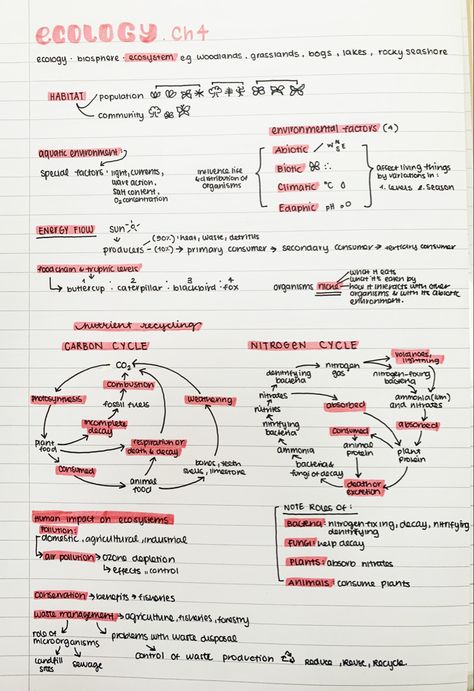 ECOLOGY. Ch4
ecology · biosphere · ecosystem eg woodlands, grasslands, bogs, lakes, rocky seashore
HABITAT
population
community
environmental factors (4)
aquatic environment
special factors: light, currents,
wave action,
salt content,
O2 concentration
influence life
& distribution of
organisms
Abiotic
N
W E
S
Biotic
Climatic °C
Edaphic pH
affect living things
by variations in:
1. levels 2. season
ENERGY FLOW
sun
producers (90%) · heat, waste, detritus
(10%) → primary consumer → secondary consumer → tertiary consumer
food chain & trophic levels
1 2 3 4
buttercup · caterpillar · blackbird · fox
organisms niche
what it eats
what it's eaten by
how it interacts with other
organisms & with its abiotic
environment.
nutrient recycling
CARBON CYCLE
CO2
combustion
photosynthesis
fossil fuels
weathering
incomplete
decay
respiration or
death & decay
plant
food
consumed
animal
food
bones, teeth
limestone
NITROGEN CYCLE
volcanoes,
lightning
denitrifying
bacteria
nitrogen
gas
nitrogen-fixing
bacteria
nitrates
absorbed
ammonia
and nitrates
nitrites
nitrifying
bacteria
consumed
absorbed
ammonia
animal
protein
plant
protein
bacteria &
fungi of decay
death or
excretion
Human impact on ecosystems
Pollution:
domestic, agricultural, industrial
air pollution → ozone depletion
effects, control
NOTE ROLES OF:
Bacteria: nitrogen fixing, decay, nitrifying,
denitrifying
Fungi: help decay
Plants: absorb nitrates
Animals: consume plants
conservation → benefits → fisheries
waste management → agriculture, fisheries, forestry
role of
microorganisms
problems with waste disposal
landfill
sites
sewage
control of waste production
reduce, reuse, recycle.